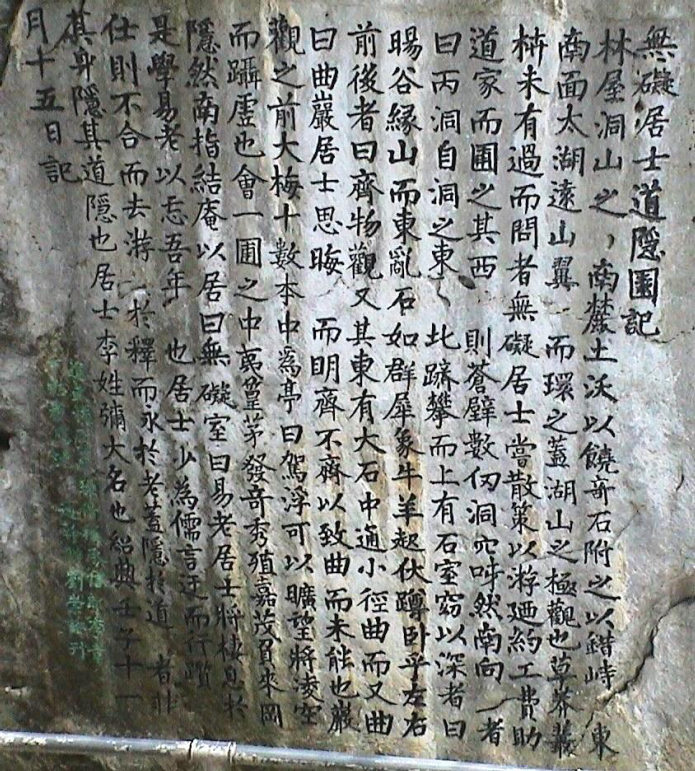 無礙居士道隱園記
林屋洞山之丶南麓土沃以饒奇石附之以錯峙 東
南面太湖遠山翼 而環之蓋湖山之極觀也草莽蘙
栫未有過而問者無礙居士嘗散策以游廼約工費助
道家而圃之其西 則蒼壁數仞洞穴呀然南向 者
曰丙洞自洞之東丶北躋攀而上有石室窈以深者曰
暘谷緣山而東亂石如群犀象牛羊起伏蹲卧乎左右
前後者曰齊物觀又其東有大石中通小徑曲而又曲
曰曲巖居士思晦 而明齊不齊以致曲而未能也巖
觀之前大梅十數本中為亭曰駕浮可以曠望將凌空
而躡虛也會一圃之中 篁茅發奇秀殖嘉茂貧來岡
隱然南指結庵以居曰無礙室曰易老居士將棲息於
是學易老以忘吾年 也居士少為儒言迂而行躓
仕則不合而去游丶於釋而永於老蓋隱於道 者非
其身隱其道隱也居士李姓彌大名也紹興壬子十一
月十五日記